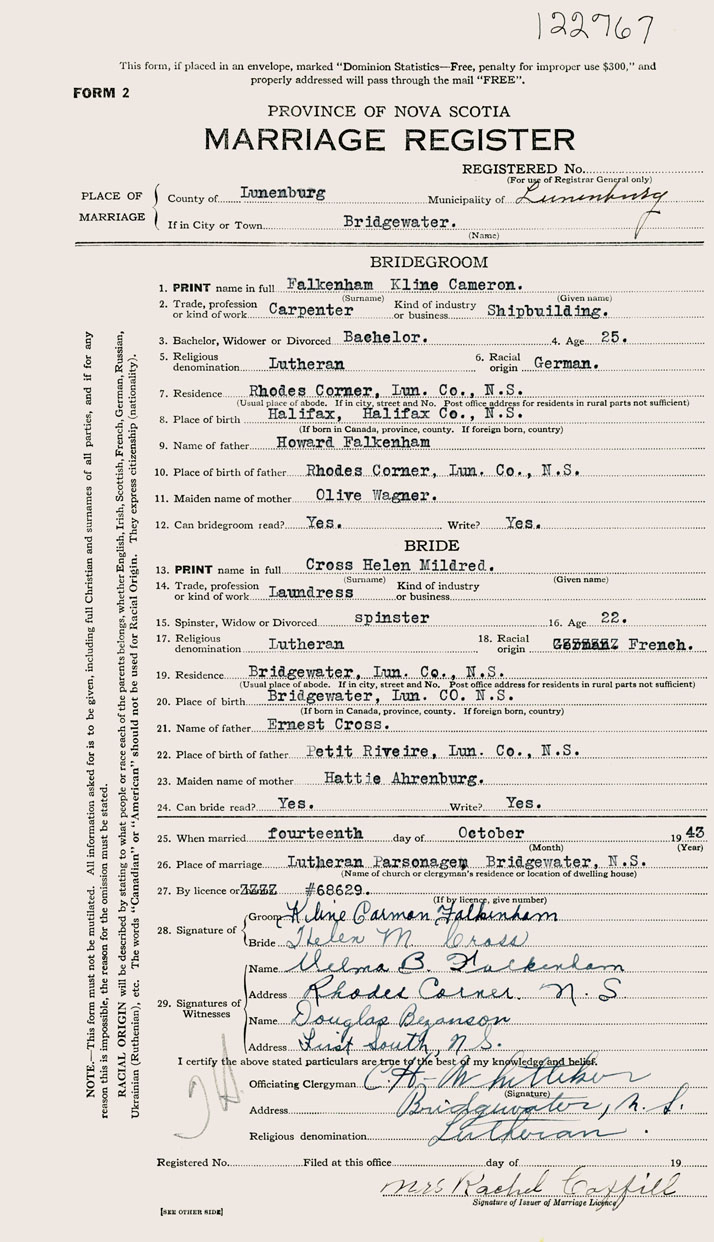 122767
This form, if placed in an envelope, marked "Dominion Statistics—Free, penalty for improper use $300," and
properly addressed will pass through the mail "FREE".
FORM 2
PROVINCE OF NOVA SCOTIA
MARRIAGE REGISTER
REGISTERED No.
(For use of Registrar General only)
PLACE OF MARRIAGE
County of Lunenburg Municipality of Lunenburg
If in City or Town Bridgewater.
(Name)
BRIDEGROOM
1. PRINT name in full Falkenham Kline Cameron.
(Surname) (Given name)
2. Trade, profession or kind of work Carpenter Kind of industry or business Shipbuilding.
3. Bachelor, Widower or Divorced Bachelor. 4. Age 25.
5. Religious denomination Lutheran 6. Racial origin German.
7. Residence Rhodes Corner, Lun. Co., N.S.
(Usual place of abode. If in city, street and No. Post office address for residents in rural parts not sufficient)
8. Place of birth Halifax, Halifax Co., N.S.
(If born in Canada, province, county. If foreign born, country)
9. Name of father Howard Falkenham
10. Place of birth of father Rhodes Corner, Lun. Co., N.S.
11. Maiden name of mother Olive Wagner.
12. Can bridegroom read? Yes. Write? Yes.
BRIDE
13. PRINT name in full Cross Helen Mildred.
(Surname) (Given name)
14. Trade, profession or kind of work Laundress Kind of industry or business
15. Spinster, Widow or Divorced spinster 16. Age 22.
17. Religious denomination Lutheran 18. Racial origin French.
19. Residence Bridgewater, Lun. Co., N.S.
(Usual place of abode. If in city, street and No. Post office address for residents in rural parts not sufficient)
20. Place of birth Bridgewater, Lun. CO. N.S.
(If born in Canada, province, county. If foreign born, country)
21. Name of father Ernest Cross.
22. Place of birth of father Petit Riveire, Lun. Co., N.S.
23. Maiden name of mother Hattie Ahrenburg.
24. Can bride read? Yes. Write? Yes.
25. When married fourteenth day of October 1943
(Month) (Year)
26. Place of marriage Lutheran Parsonage, Bridgewater, N.S.
(Name of church or clergyman's residence or location of dwelling house)
27. By licence or ZZZZ #68629.
(If by licence, give number)
28. Signature of
Groom Kline Carman Falkenham
Bride Helen M Cross
29. Signatures of Witnesses
Name Velma B. Falkenham
Address Rhodes Corner. N.S
Name Douglas Bezanson
Address First South, N.S.
I certify the above stated particulars are true to the best of my knowledge and belief.
Officiating Clergyman C. H. Whitteker
(Signature)
Address Bridgewater, N.S.
Religious denomination Lutheran.
Registered No. Filed at this office day of 19
Mrs Rachel
Signature of Issuer of Marriage Licence
[SEE OTHER SIDE]
NOTE.—This form must not be mutilated. All information asked for is to be given, including full Christian and surnames of all parties, and if for any
reason this is impossible, the reason for the omission must be stated.
RACIAL ORIGIN will be described by stating to what people or race each of the parents belongs, whether English, Irish, Scottish, French, German, Russian,
Ukrainian (Ruthenian), etc. The words "Canadian" or "American" should not be used for Racial Origin. They express citizenship (nationality).